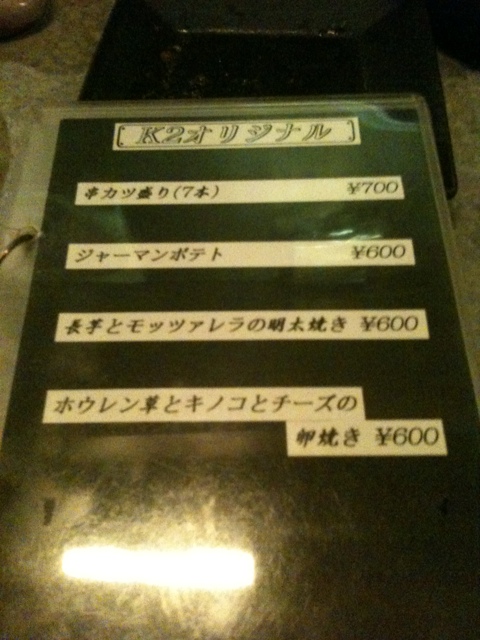 K2オリジナル
串カツ盛り(7本) ¥700
ジャーマンポテト ¥600
長芋とモッツァレラの明太焼き ¥600
ホウレン草とキノコとチーズの
卵焼き ¥600